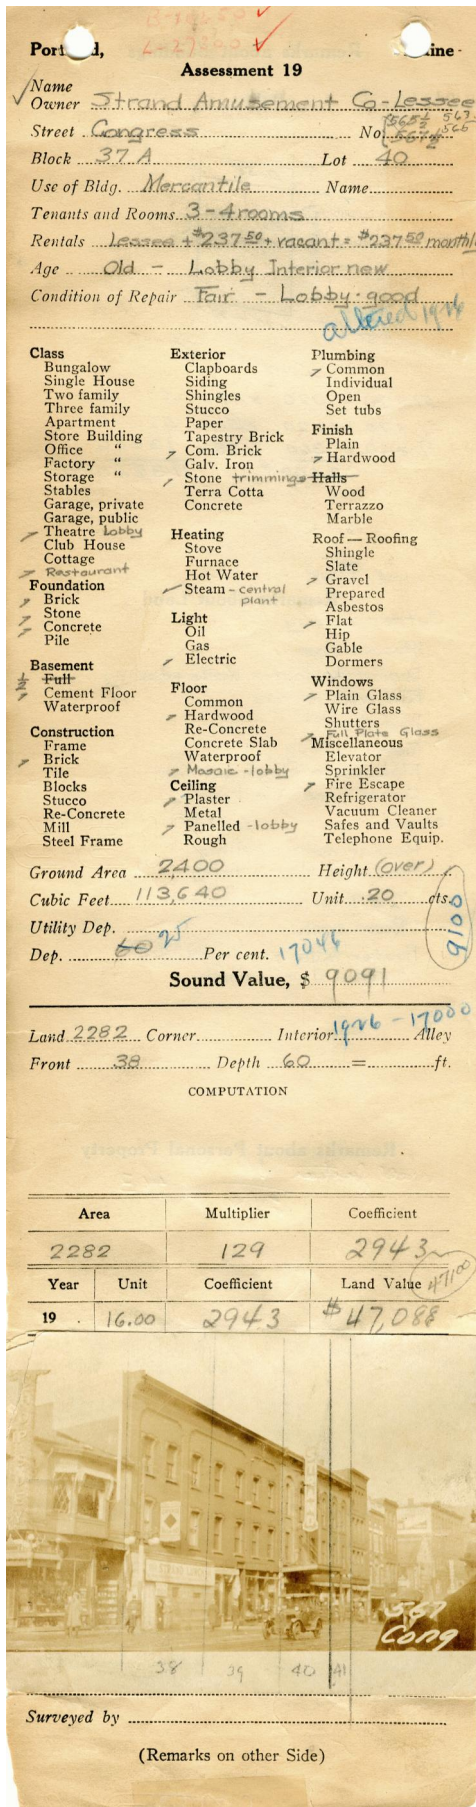 B-10650 ✓
L-27300 ✓
Port    d,    ine
Assessment 19
✓
Name
Owner Strand Amusement Co-Lessee
Street Congress No. 565½ 567-
567½ 566
Block 37 A Lot 40
Use of Bldg. Mercantile Name
Tenants and Rooms 3-4 rooms
Rentals Lessee + $237.50 + vacant = $237.50 monthly
Age Old - Lobby Interior new
Condition of Repair Fair - Lobby-good
altered 1926
Class
Bungalow
Single House
Two family
Three family
Apartment
Store Building
Office "
Factory "
Storage "
Stables
Garage, private
Garage, public
Theatre Lobby
Club House
Cottage
Restaurant
Foundation
Brick
Stone
Concrete
Pile
Basement
½ Full
Cement Floor
Waterproof
Construction
Frame
Brick
Tile
Blocks
Stucco
Re-Concrete
Mill
Steel Frame
Exterior
Clapboards
Siding
Shingles
Stucco
Paper
Tapestry Brick
Com. Brick
Galv. Iron
Stone trimmings
Terra Cotta
Concrete
Heating
Stove
Furnace
Hot Water
Steam - central
plant
Light
Oil
Gas
Electric
Floor
Common
Hardwood
Re-Concrete
Concrete Slab
Waterproof
Mosaic - lobby
Ceiling
Plaster
Metal
Panelled - lobby
Rough
Plumbing
Common
Individual
Open
Set tubs
Finish
Plain
Hardwood
Halls
Wood
Terrazzo
Marble
Roof — Roofing
Shingle
Slate
Gravel
Prepared
Asbestos
Flat
Hip
Gable
Dormers
Windows
Plain Glass
Wire Glass
Shutters
Full Plate Glass
Miscellaneous
Elevator
Sprinkler
Fire Escape
Refrigerator
Vacuum Cleaner
Safes and Vaults
Telephone Equip.
Ground Area 2400 Height (over)
Cubic Feet 113,640 Unit .20 cts.
9100
Utility Dep.
Dep. 60 25 Per cent. 17046
Sound Value, $ 9091
1926 - 17000
Land 2282 Corner Interior Alley
Front 38 Depth 60 = ft.
COMPUTATION
Area Multiplier Coefficient
2282 129 2943
Year Unit Coefficient Land Value 47100
19 16.00 2943 $47,088
567
Cong
38 39 40 41
Surveyed by
(Remarks on other Side)